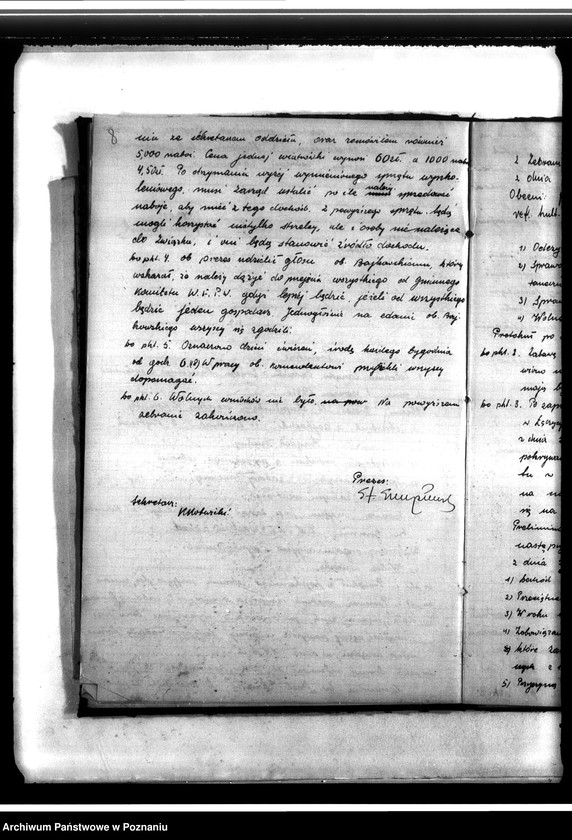 8
nia ze sekretarzem oddziału, oraz zamówiłem również
5,000 naboi. Cena jednej wiatrówki wynosi 60zł. a 1000 nab.
4,50zł. Po otrzymaniu wyżej wymienionego sprzętu wyszko-
leniowego, musi zarząd ustalić po ile należy sprzedawać
naboje, aby mieć z tego dochód. Z powyższego sprzętu będą
mogli korzystać nietylko strzelcy, ale i osoby nie należące
do Związku, i oni będą stanowić źródło dochodu.
Do pkt. 4. ob Prezes udzielił głosu ob. Bajkowskiemu, który
wskazał, że należy dążyć do przejęcia wszystkiego od Gminnego
Komitetu W.F.P.W. gdyż lepiej będzie, jeżeli od wszystkiego
będzie jeden gospodarz. Jednogłośnie na zdanie ob. Baj-
kowskiego wszyscy się zgodzili.
Do pkt. 5. Oznaczono dzień ćwiczeń, środę każdego tygodnia
od godz. 6. W pracy ob. komendantowi przyrzekli wszyscy
dopomagać.
Do pkt. 6. Wolnych wniosków nie było, na pow Na powyższem
zebranie zakończono.
Prezes:
St.
Sekretarz:
2 Zebran
z dnia
Obecni:
ref. kult.
1)
2) Sprawo
3) Spraw
4) Woln
Protokuł po
Do pkt. 2.
mają b
Do pkt. 3. Po zap
z dnia
pokrywa
bu w
na
się na
Prelimin
z dnia
1) Dochód
2) Przeciętne
3) W roku
4) Zobowiązan
które za
5) Przyczyną
Archiwum Państwowe w Poznaniu